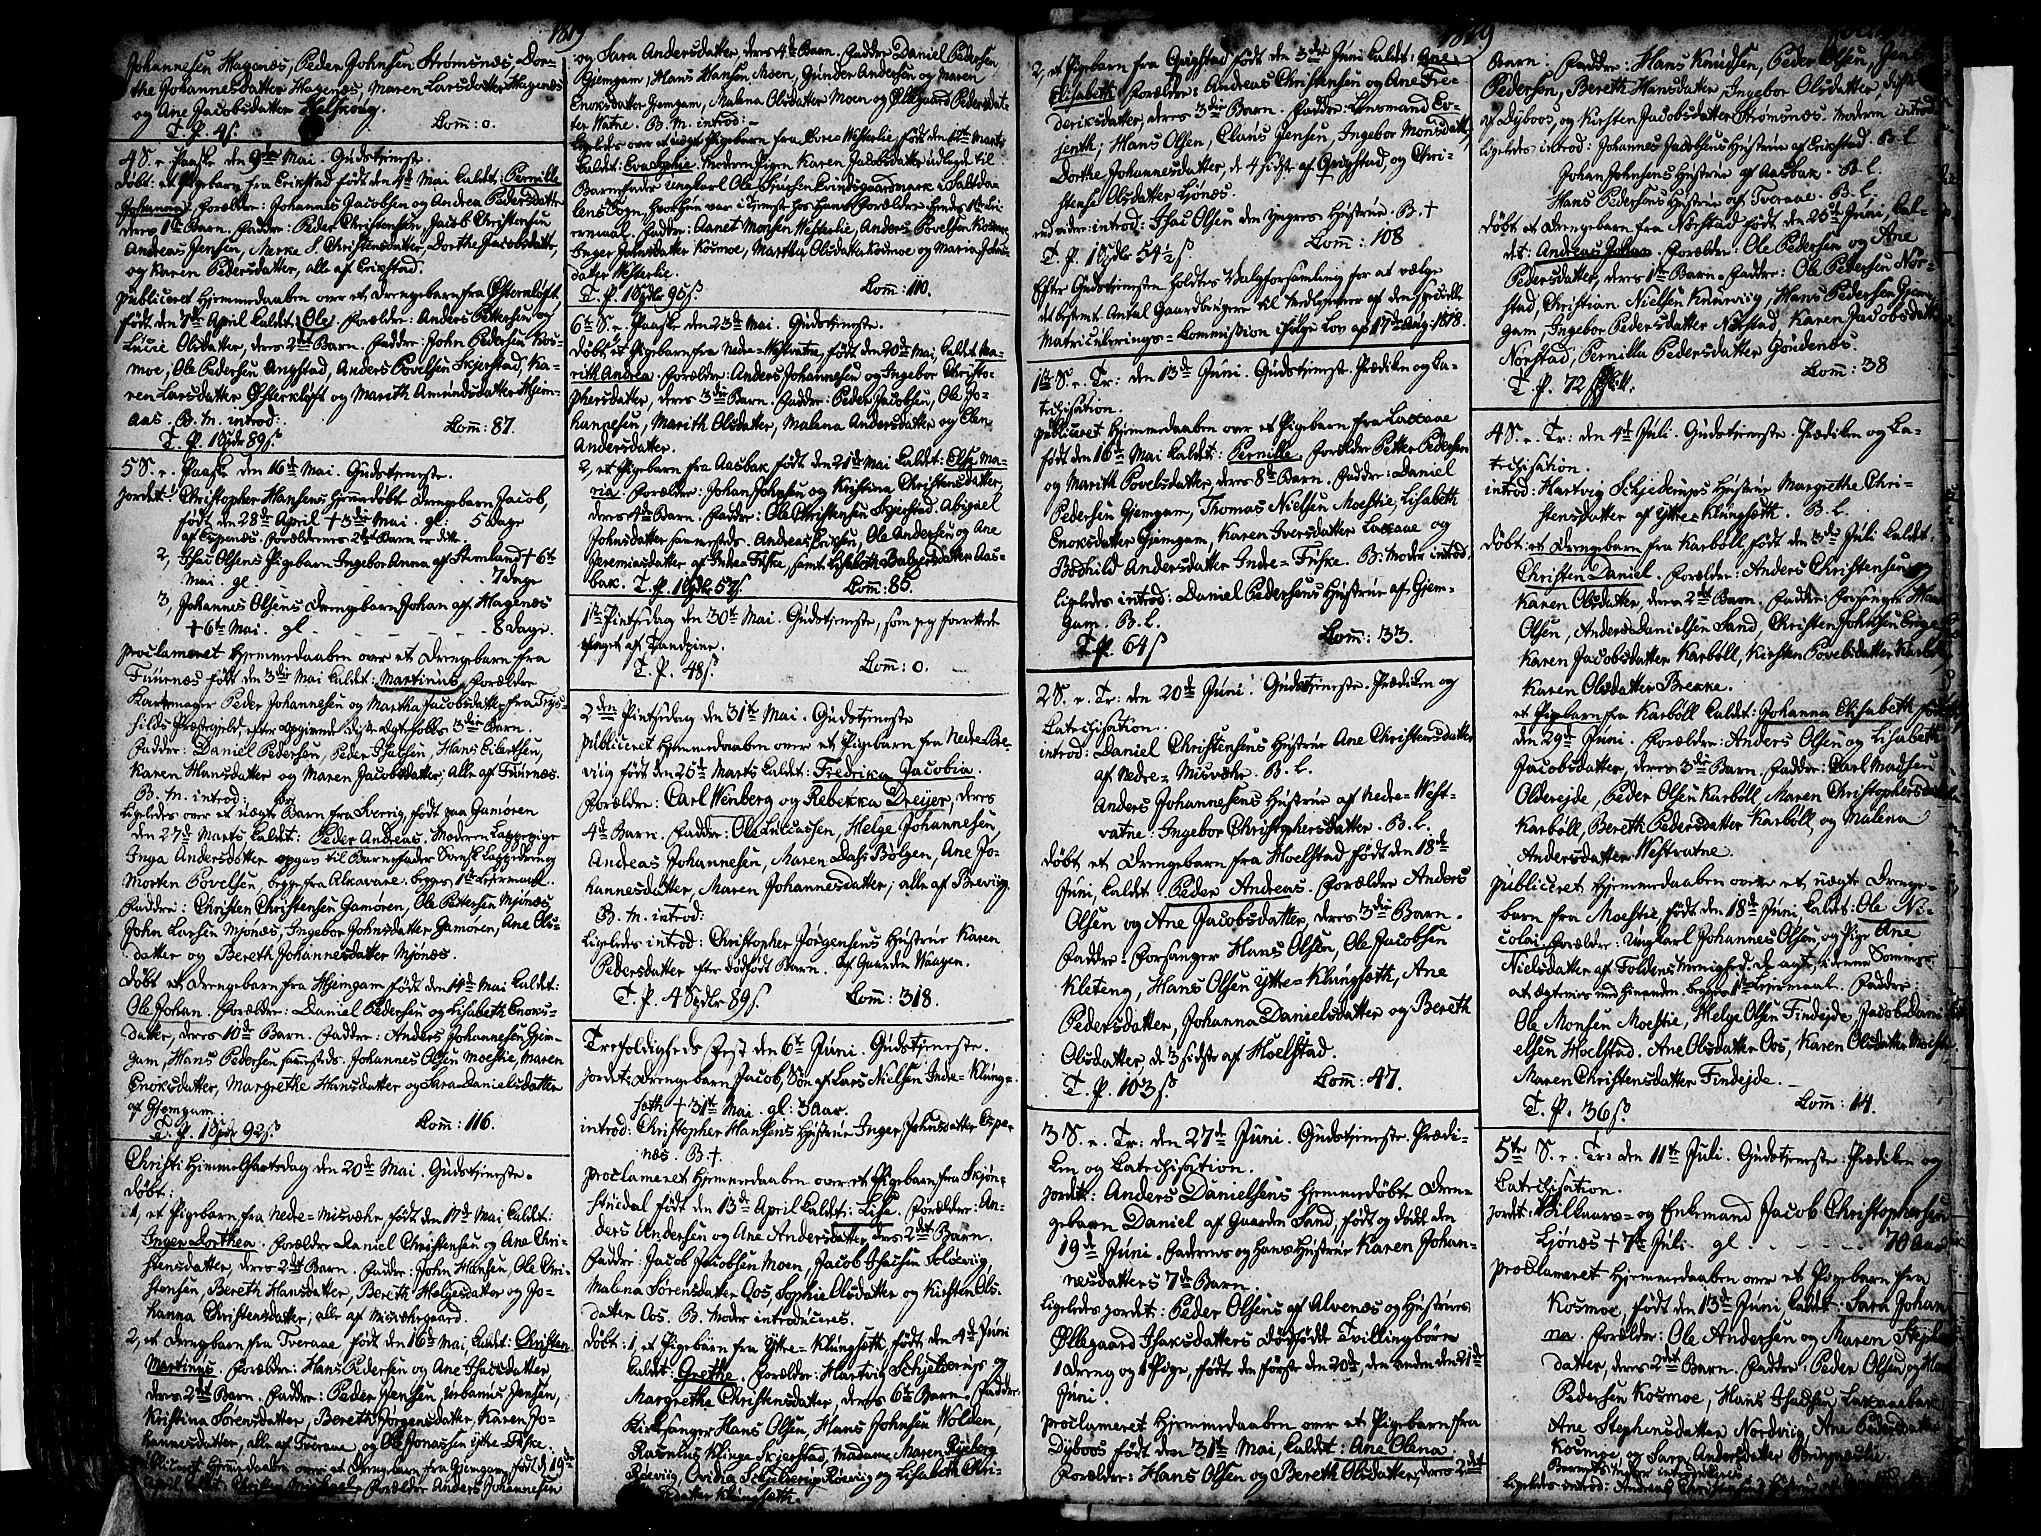 1819
Johannesen Hagenæs, Peder Johnsen Strømsnæs, Dor-
the Johannesdatter Hagenæs, Maren Larsdatter Hagenæs
og Ane Jacobsdatter
T. P. 4 s. Com: 0.
4 S. e. Paaske den 9de Mai. Gudstjeneste.
Døbt: et Pigebarn fra Erikstad født den 4de Mai kaldet: Pernille
Johanna. Forældre: Johannes Jacobsen og Andrea Pedersdatter
deres 1ste Barn. Faddre: Peder Christensen, Jacob Christensen
Andreas Jensen, Merke S. Christensdatter, Dorthe Jacobsdatter,
og Karen Pedersdatter, alle af Erikstad.
publiceret Hjemmedaaben over et Drengebarn fra Østerkløft
født den 7de April kaldet: Ole. Forældre: Anders Pettersen og
Lucie Olsdatter, deres 2det Barn. Faddre: John Pedersen Kos-
moe, Ole Pedersen Angstad, Anders Povelsen Skjerstad, Ka-
ren Larsdatter Østerkløft og Marith Amundsdatter Hjem-
aas. B. M. introd:
T. P. 1 Spdr 89 s. Com: 87.
5 S. e. Paaske den 16de Mai. Gudstjeneste.
jordet: Christopher Hansens hjemmedøbt Drengebarn Jacob,
født den 28de April + 3die Mai. gl: 5 Dage
af Espenæs. Forældrenes 2det Barn er dette.
2, Isai Olsens Pigebarn Ingebor Anna af Stemland + 6te
Mai. gl 7 dage
3, Johannes Olsens Drengebarn Johan af Hagenæs
+ 6te Mai. gl 8 dage.
proclameret Hjemmedaaben over et Drengebarn fra
Fuurnæs født den 3die Mai kaldet: Martinus. Forældre
Peder Johannesen og Martha Jacobsdatter fra Trys-
hilds Præstegjeld, efter opgivende Ægtefolks 3die Barn.
Faddre: Daniel Pedersen, Peder Isachsen, Hans Eilertsen,
Karen Hansdatter og Maren Jacobsdatter, alle af Fuurnæs.
B. M. introd:
Ligeledes over et uægte Barn fra Sverrig, født paa Gamøren
den 27de Marts kaldet: Peder Andreas. Moderen Lappepige
Inga Andersdatter opgav til Barnefader Svensk Lappedreng
Morten Povelsen, begge fra Alkavare. begges 1ste Lejermaal.
Faddre: Christen Christensen Gamøren, Ole Pettersen Mjønæs
John Larsen Mjønæs, Ingebor Johnsdatter Gamøren, Ane Ols-
datter og Bereth Johannesdatter Mjønæs.
Døbt et Drengebarn fra Hjemgam født den 14de Mai kaldet:
Ole Johan. Forældre: Daniel Pedersen og Lisabeth Enoks-
datter, deres 10de Barn. Faddre: Anders Johannesen Gjem-
gam, Hans Pedersen sammesteds. Johannes Olsen Moestie, Maren
Enoksdatter, Margrethe Hansdatter og Sara Danielsdatter
af Gjemgam.
T. P. 1 Spdr 92 s. Com: 116.
Christi Himmelfartsdag den 20de Mai. Gudstjeneste.
Døbt:
1, et Pigebarn fra Nedre-Misvæhr født den 17de Mai kaldet:
Inger Dorthea. Forældre Daniel Christensen og Ane Chri-
stensdatter, deres 2det Barn. Faddre: John Hansen, Ole Chri-
stensen, Bereth Hansdatter, Bereth Helgesdatter og Jo-
hanna Christensdatter, alle af Misvæhrgaard.
2, et Drengebarn fra Tveraae født den 16de Mai, kaldet: Christen
Martinus. Forældre: Hans Pedersen og Ane Isacsdatter
deres 2det Barn. Faddre: Peder Jensen, Urbanus Jensen,
Kristina Sørensdatter, Bereth Jørgensdatter, Karen Jo-
hannesdatter, alle af Tveraae, og Ole Jonassen Ytre-Fiske.
publiceret Hjemmedaaben over et Drengebarn fra Gjemgam, født d. 19de
April kaldet: Christen Michael. Forældre Anders Johannesen
og Sara Andersdatter, deres 4de Barn. Faddre Daniel Pedersen
Gjemgam, Hans Hansen Moen, Gunder Andersen og Maren
Enoksdatter Gjemgam, Malena Olsdatter Moen og Øllegaard Pedersdat-
ter Vatne. B. M. introd:
Ligeledes over et uægte Pigebarn fra Westerlie født den 10de Marts
kaldet: Eva Sophie. Moderen Pigen Karen Jacobsdatter udlagde til
Barnefader Ungkarl Ole Sjursen Evindsgaardmark i Saltda-
lens Sogn, hvor hun var i Tjeneste hos hans Forældre. hendes 1ste Lei-
ermaal. Faddre: Aanet Monsen Westerlie, Anders Povelsen Kosmoe
Inger Johnsdatter Kosmoe, Martha Olsdatter Kosmoe og Maria Johns-
datter Westerlie.
T. P. 1 Spdlr 95 s. Com: 110.
6te S. e. Paaske den 23de Mai. Gudstjeneste.
Døbt, et Pigebarn fra Nedre-Westvatne, født den 20de Mai, kaldet Ma-
rith Andrea. Forældre: Anders Johannesen og Ingebor Christo-
phersdatter, deres 3die Barn. Faddre: Peder Jacobsen, Ole Jo-
hannesen, Marith Olsdatter, Malena Andersdatter og Elen
Andersdatter.
2, et Pigebarn fra Aasbak født den 21de Mai kaldet: Else Ma-
ria. Forældre: Johan Johnsen og Kristina Christensdatter,
deres 4de Barn. Faddre: Ole Christensen Skjerstad. Abigael
Johnsdatter sammesteds. Andreas Eriksen, Ole Andersen og Ane
Jeremiasdatter af Indre Fiske, samt Lisabeth Baltzersdatter Aas-
bak. T. P. 1 Spdlr 57 s. Com: 85.
1ste Pintsdag den 30te Mai. Gudstjeneste, som jeg forrettede
plaget af Tandpine.
T. P. 48 s. Com: 0.
2den Pintsdag den 31te Mai. Gudstjeneste
publiceret Hjemmedaaben over et Pigebarn fra Nedre Bre-
viig født den 25de Marts kaldet: Fredrika Jacobia.
Forældre: Carl Wenberg og Rebekka Dreyer, deres
4de Barn. Faddre: Ole Luccassen, Helge Johannesen,
Andreas Johannesen, Maren Dass Bolgen, Ane Jo-
hannesdatter, Maren Johannesdatter; alle af Breviig.
B. M. introd:
Ligeledes introd: Christopher Jørgensens Hustrue Karen
Pedersdatter efter dødfødt Barn. af Gaarden Naagen.
T. P. 4 Spdlr 89 s. Com: 318.
Trefoldigheds Fest den 6te Juni. Gudstjeneste.
jordet: Drengebarn Jacob, Søn af Lars Nielsen Indre-Klung-
seth + 31te Mai. gl: 3 Aar.
introd: Christopher Hansens Hustrue Inger Johnsdatter Espe-
næs. B. +
proclameret Hjemmedaaben over et Pigebarn fra Skjøn-
stuedal født den 13de April kaldet: Lise. Forældre: An-
ders Andersen og Ane Andersdatter, deres 2det Barn.
Faddre: Jacob Jacobsen Moen, Jacob Isachsen Solvevig,
Malena Sørensdatter Oos, Sophie Olsdatter og Kirsten Ols-
datter Oos. B. Moder introduceres.
Døbt: 1, et Pigebarn fra Yttre-Klungseth, født den 4de Juni
kaldet: Grethe. Forældre: Hartvig Schjelderups og
Margrethe Christensdatter, deres 6te Barn. Faddre:
Kirkesanger Hans Olsen, Hans Johnsen Wolden,
Rasmus Klinge Skjerstad, Madame Maren Rijberg
Røevig, Ovidia Schjelderup Røevig og Lisabeth Chri-
stensdatter Klungseth.
1819
2, et Pigebarn fra Qvigstad født den 3die Juni kaldet: Ane
Elisabeth. Forældre: Andreas Christensen og Ane Fre-
deriksdatter, deres 3die Barn. Faddre: Lensmand Co-
senth; Hans Olsen, Claus Jensen, Ingebor Monsdatter,
Dorthe Johannesdatter, de 4 sidst af Qvigstad, og Chri-
stense Olsdatter Ljønæs.
endvidere introd: Isai Olsen den yngres Hustrue. B. +
T. P. 1 Spdlr 54½ s. Com: 108
Efter Gudstjenesten holdtes Valgforsamling for at vælge
det bestemt Antal Gaardbrugere til Medlemmer af den specielle
Matriculerings-Commission ifølge Lov af 17de Aug: 1818.
1ste S. e. Tr: den 13de Juni. Gudstjeneste. Prædiken og Ca-
techisation.
publiceret Hjemmedaaben over et Pigebarn fra Laxaae
født den 16de Mai kaldet: Pernille. Forældre Petter Pedersen
og Marith Povelsdatter, deres 8de Barn. Faddre: Daniel
Pedersen Gjemgam, Thomas Nielsen Moestie, Lisabeth
Enoksdatter Gjemgam, Karen Iversdatter Laxaae og
Bodhild Andersdatter Indre-Fiske. B. Moder introd:
Ligeledes introd: Daniel Pedersens Hustrue af Gjem-
gam. B. L.
T. P. 64 s Com: 33.
2 S. e. Tr: den 20de Juni. Gudstjeneste. Prædiken og
Catechisation.
introd: Daniel Christensens Hustrue Ane Christensdatter
af Nedre-Misvæhr. B. L.
Anders Johannesens Hustrue af Nedre-West-
vatne. Ingebor Christophersdatter. B. L.
Døbt et Drengebarn fra Hoelstad født den 18de
Juni, kaldet: Peder Andreas. Forældre Anders
Olsen og Ane Jacobsdatter, deres 3die Barn.
Faddre: Forsanger Hans Olsen, Ole Jacobsen
Kleteng, Hans Olsen Yttre-Klungseth, Ane
Pedersdatter, Johanna Danielsdatter og Bereth
Olsdatter, de 3 sidste af Hoelstad.
T. P. 103 s. Com: 47.
3 S. e. Tr: den 27de Juni. Gudstjeneste. Prædi-
ken og Catechisation.
jordt: Anders Danielsens hjemmedøbte Dren-
gebarn Daniel af Gaarden Sand, født og død den
19de Juni. Faderens og Hans Hustrue Karen Johan-
nesdatters 7de Barn.
ligeledes jordet: Peder Olsens af Alvenæs og Hustrues
Øllegaard Isaksdatters dødfødde Tvillingbørn
1 Dreng og 1 Pige, fødte den første den 20de, den anden den 21de
Juni.
proclameret Hjemmedaaben over et Pigebarn fra
Dyboos født den 31te Mai, kaldet: Ane Olena.
Forældre: Hans Olsen og Bereth Olsdatter, deres 2det
Barn. Faddre: Hans Knudsen, Peder Olsen, Jens
Pedersen, Bereth Hansdatter, Ingebor Olsdatter, disse
af Dyboos, og Kirsten Jacobsdatter Strømsnæs. Moderen introd:
ligeledes introd: Johannes Jacobsens Hustrue af Erikstad. B. L.
Johan Johnsens Hustrue af Aasbak. B. L.
Hans Pedersens Hustrue af Tveraae. B. L.
Døbt et Drengebarn fra Norstad født den 25de Juni, kal-
det: Andreas Johan. Forældre: Ole Pedersen og Ane
Pedersdatter, deres 1ste Barn. Faddre: Ole Pedersen Nor-
stad, Christian Nielsen Knarvig, Hans Pedersen Gjem-
gam, Ingebor Pedersdatter Norstad, Karen Jacobsdatter
Norstad, Pernilla Pedersdatter Godenøs.
T. P. 72 Skill: Com: 38
4 S. e. Tr: den 4de Juli. Gudstjeneste. Prædiken og Ca-
techisation.
introd: Hartvig Schjelderups Hustrue Margrethe Chri-
stensdatter af Yttre Klungseth. B. L.
Døbt: et Drengebarn fra Karbøll, født den 3die Juli kaldet:
Christen Daniel. Forældre: Anders Christensen og
Karen Olsdatter, deres 2det Barn. Faddre: Forsanger Hans
Olsen, Anders Danielsen Sand, Christen Johnsen
Karen Jacobsdatter Karbøll, Kirsten Povelsdatter Karbøll,
Karen Olsdatter Brekke.
et Pigebarn fra Karbøll kaldet: Johanna Elisabeth født
den 29de Juni. Forældre: Anders Olsen og Lisabeth
Jacobsdatter, deres 3die Barn. Faddre: Carl Madsen
Oldereide, Peder Olsen Karbøll, Maren Christophersdatter
Karbøll, Bereth Pedersdatter Karbøll, og Malena
Andersdatter Westvatne.
publiceret Hjemmedaaben over et uægte Drenge-
barn fra Moestie, født den 18de Juni, kaldet: Ole Ni-
colai. Forældre: Ungkarl Johannes Olsen, og Pige Ane
Nielsdatter af Foldens Menighed. De agte, i denne Sommer
at ægtevies med hinanden. begges 1ste Lejermaal. Faddre:
Ole Monsen Moestie, Helge Olsen Findejde, Jacob Dani-
elsen Hoelstad. Ane Olsdatter Oos, Karen Olsdatter Moestie
Maren Christensdatter Findejde.
T. P. 36 s Com: 14.
5te S. e. Tr: den 11te Juli. Gudstjeneste. Prædiken og
Catechisation.
jordet: Vilkaars- og Enkemand Jacob Christophersen
Ljønæs + 7de Juli. gl 70 Aar
proclameret Hjemmedaaben over et Pigebarn fra
Kosmoe, født den 13de Juni kaldet: Sara Johan-
na. Forældre: Ole Andersen og Maren Stephens-
datter, deres 2det Barn. Faddre: Peder Olsen, og Hans
Pedersen Kosmoe, Hans Isachsen Laxaaebak
Ane Stephensdatter Nordviig, Ane Pedersdatter
Kosmoe, og Sara Andersdatter
Barnets Moder introduceres.
Ligeledes introd: Andreas Christensens Hustrue af